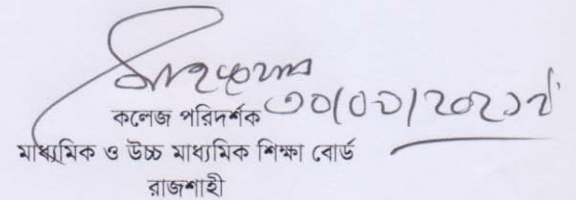 কলেজ পরিদর্শক
মাধ্যমিক ও উচ্চ মাধ্যমিক শিক্ষা বোর্ড
রাজশাহী